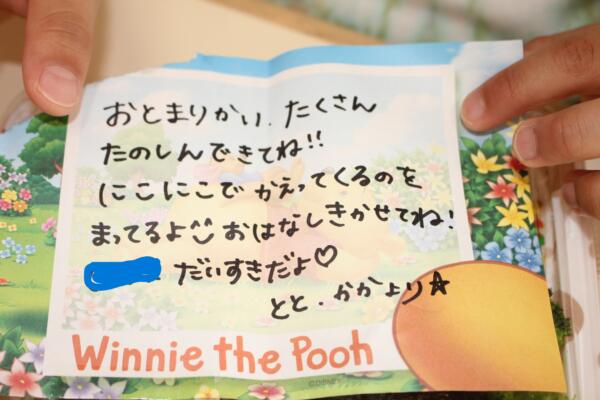 おとまりかい、たくさん
たのしんできてね!!
にこにこで かえってくるのを
まってるよ おはなしきかせてね!
だいすきだよ♡
とと・かかより☆
Winnie the Pooh
©DISNEY